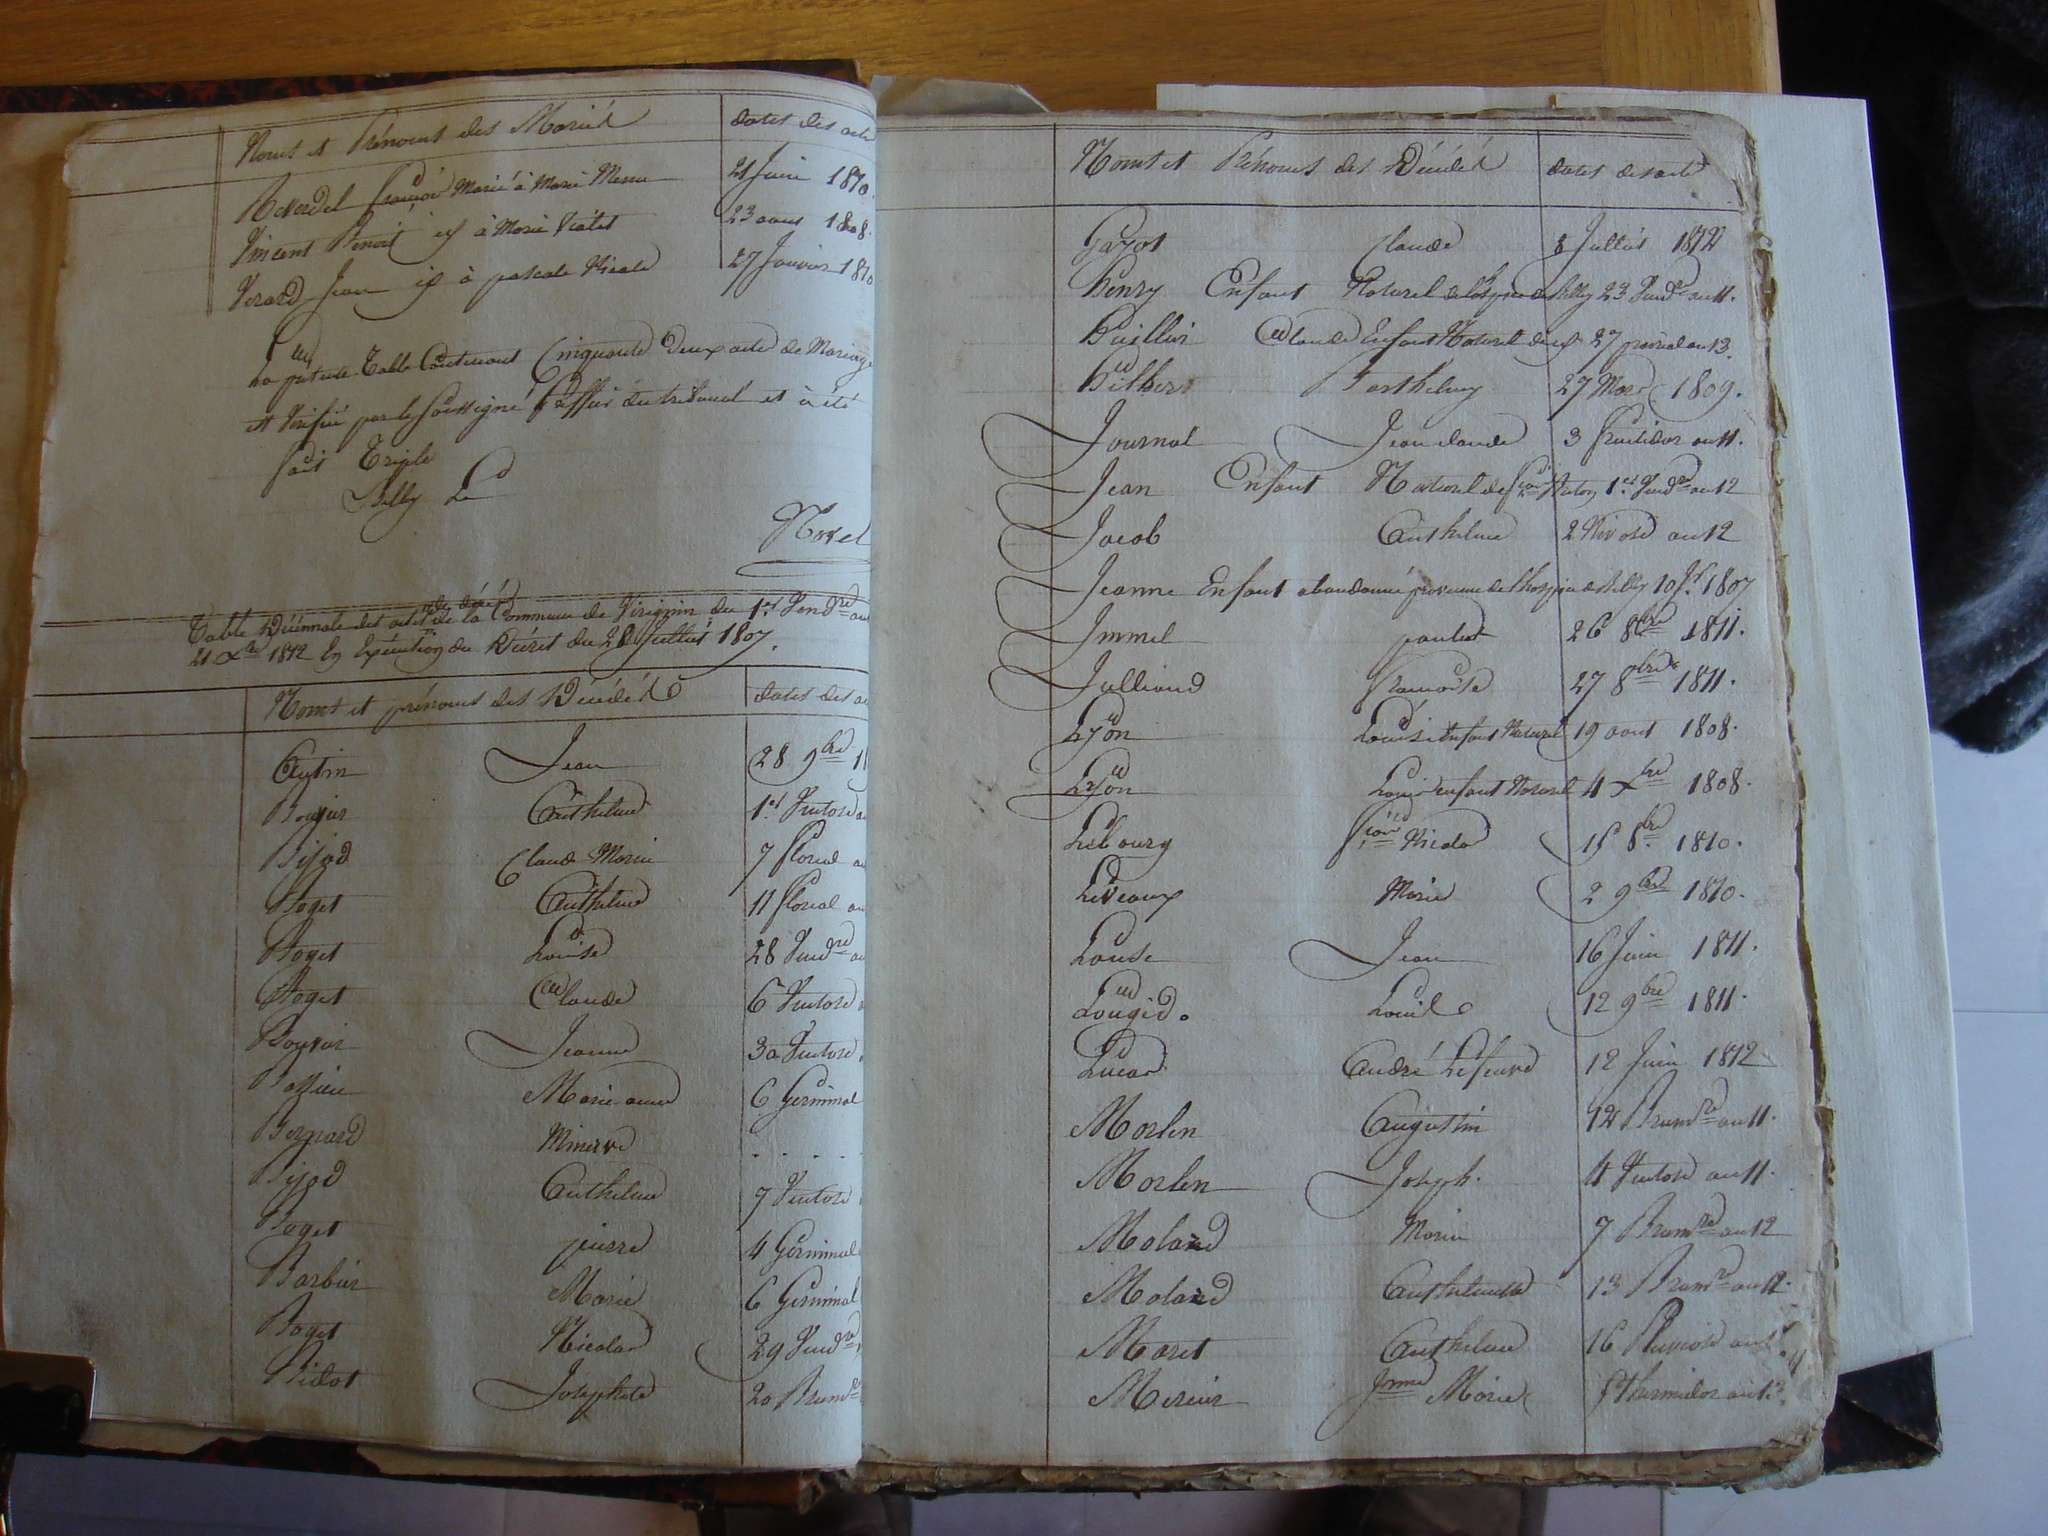 Noms et Prénoms des Mariés dates des acte
Reverdel françois Marié à Marie 21 Juin 1810.
Vincent Benoit id à Marie Violet 23 aout 1808.
Verard Jean id à pascale Nicole 27 Janvier 1810
La présente Table Contenant Cinquante deux actes de Mariage
et Vérifié par le soussigné Greffier du tribunal et à été
fait Triple
Belly Le
Morel
Table Décennale des actes de décès de la Commune de Virignin du 1er Vendre an
21 Xre 1812 En Exécution du Décret du 20 Juillet 1807.
Noms et prénoms des Décédés dates des ac
Autin Jean 28 9bre 1
Bouvier Anthelme 1er Ventose a
Bijod Claude Marie 7 floréal an
Boget Anthelme 11 floréal an
Boget Louise 28 Vendre an
Boget Claude 6 Ventose
Bouvier Jeanne 30 Ventose
Marie anne 6 Germinal
Bernard Minerve . . . . .
Bijod Anthelme 7 Ventose
Boget pierre 4 Germinal
Barbier Marie 6 Germinal
Boget Nicolas 29 Vendre
Bidot Josephte 20 Brumre
Noms et Prénoms des Décédés dates des acte
Gayot Claude 8 Juillet 1812
Henry Enfant Naturel de l'hospice de Belly 23 Vendre an 11.
Huillier Claude Enfant Naturel de id 27 prairial an 13.
Hilbert Barthelmy 27 Mars 1809.
Journal Jean claude 3 fructidor an 11.
Jean Enfant Naturel de 1er Vendre an 12
Jacob Anthelme 2 Nivose an 12
Jeanne Enfant abandonné provenue de l'hospice de Belly 10 Jer 1807
Immel paulet 26 8bre 1811.
Julliand francoise 27 8bre 1811.
Lyon Louise Enfant Naturel 19 aout 1808.
Lyon Louis enfant Naturel 4 Xbre 1808.
Lebourg Nicolas 15 8bre 1810.
Leveaux Marie 2 9bre 1810.
Louse Jean 16 Juin 1811.
Lougid. Louis 12 9bre 1811.
Lucas André Lefeuvre 12 Juin 1812
Morlin Augustin 12 Brumre an 11.
Morlin Joseph. 4 Ventose an 11.
Molard Marie 7 Brumre an 12
Molard Anthelmette 13 Brumre an 12.
Moret Anthelme 16 Pluviose an
Mercier Jeanne Marie thermidor an 12